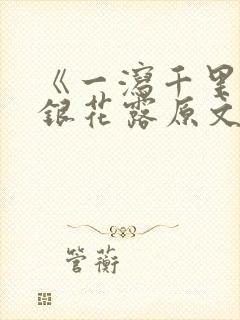 《一泻千里
银花露原文
管蘅